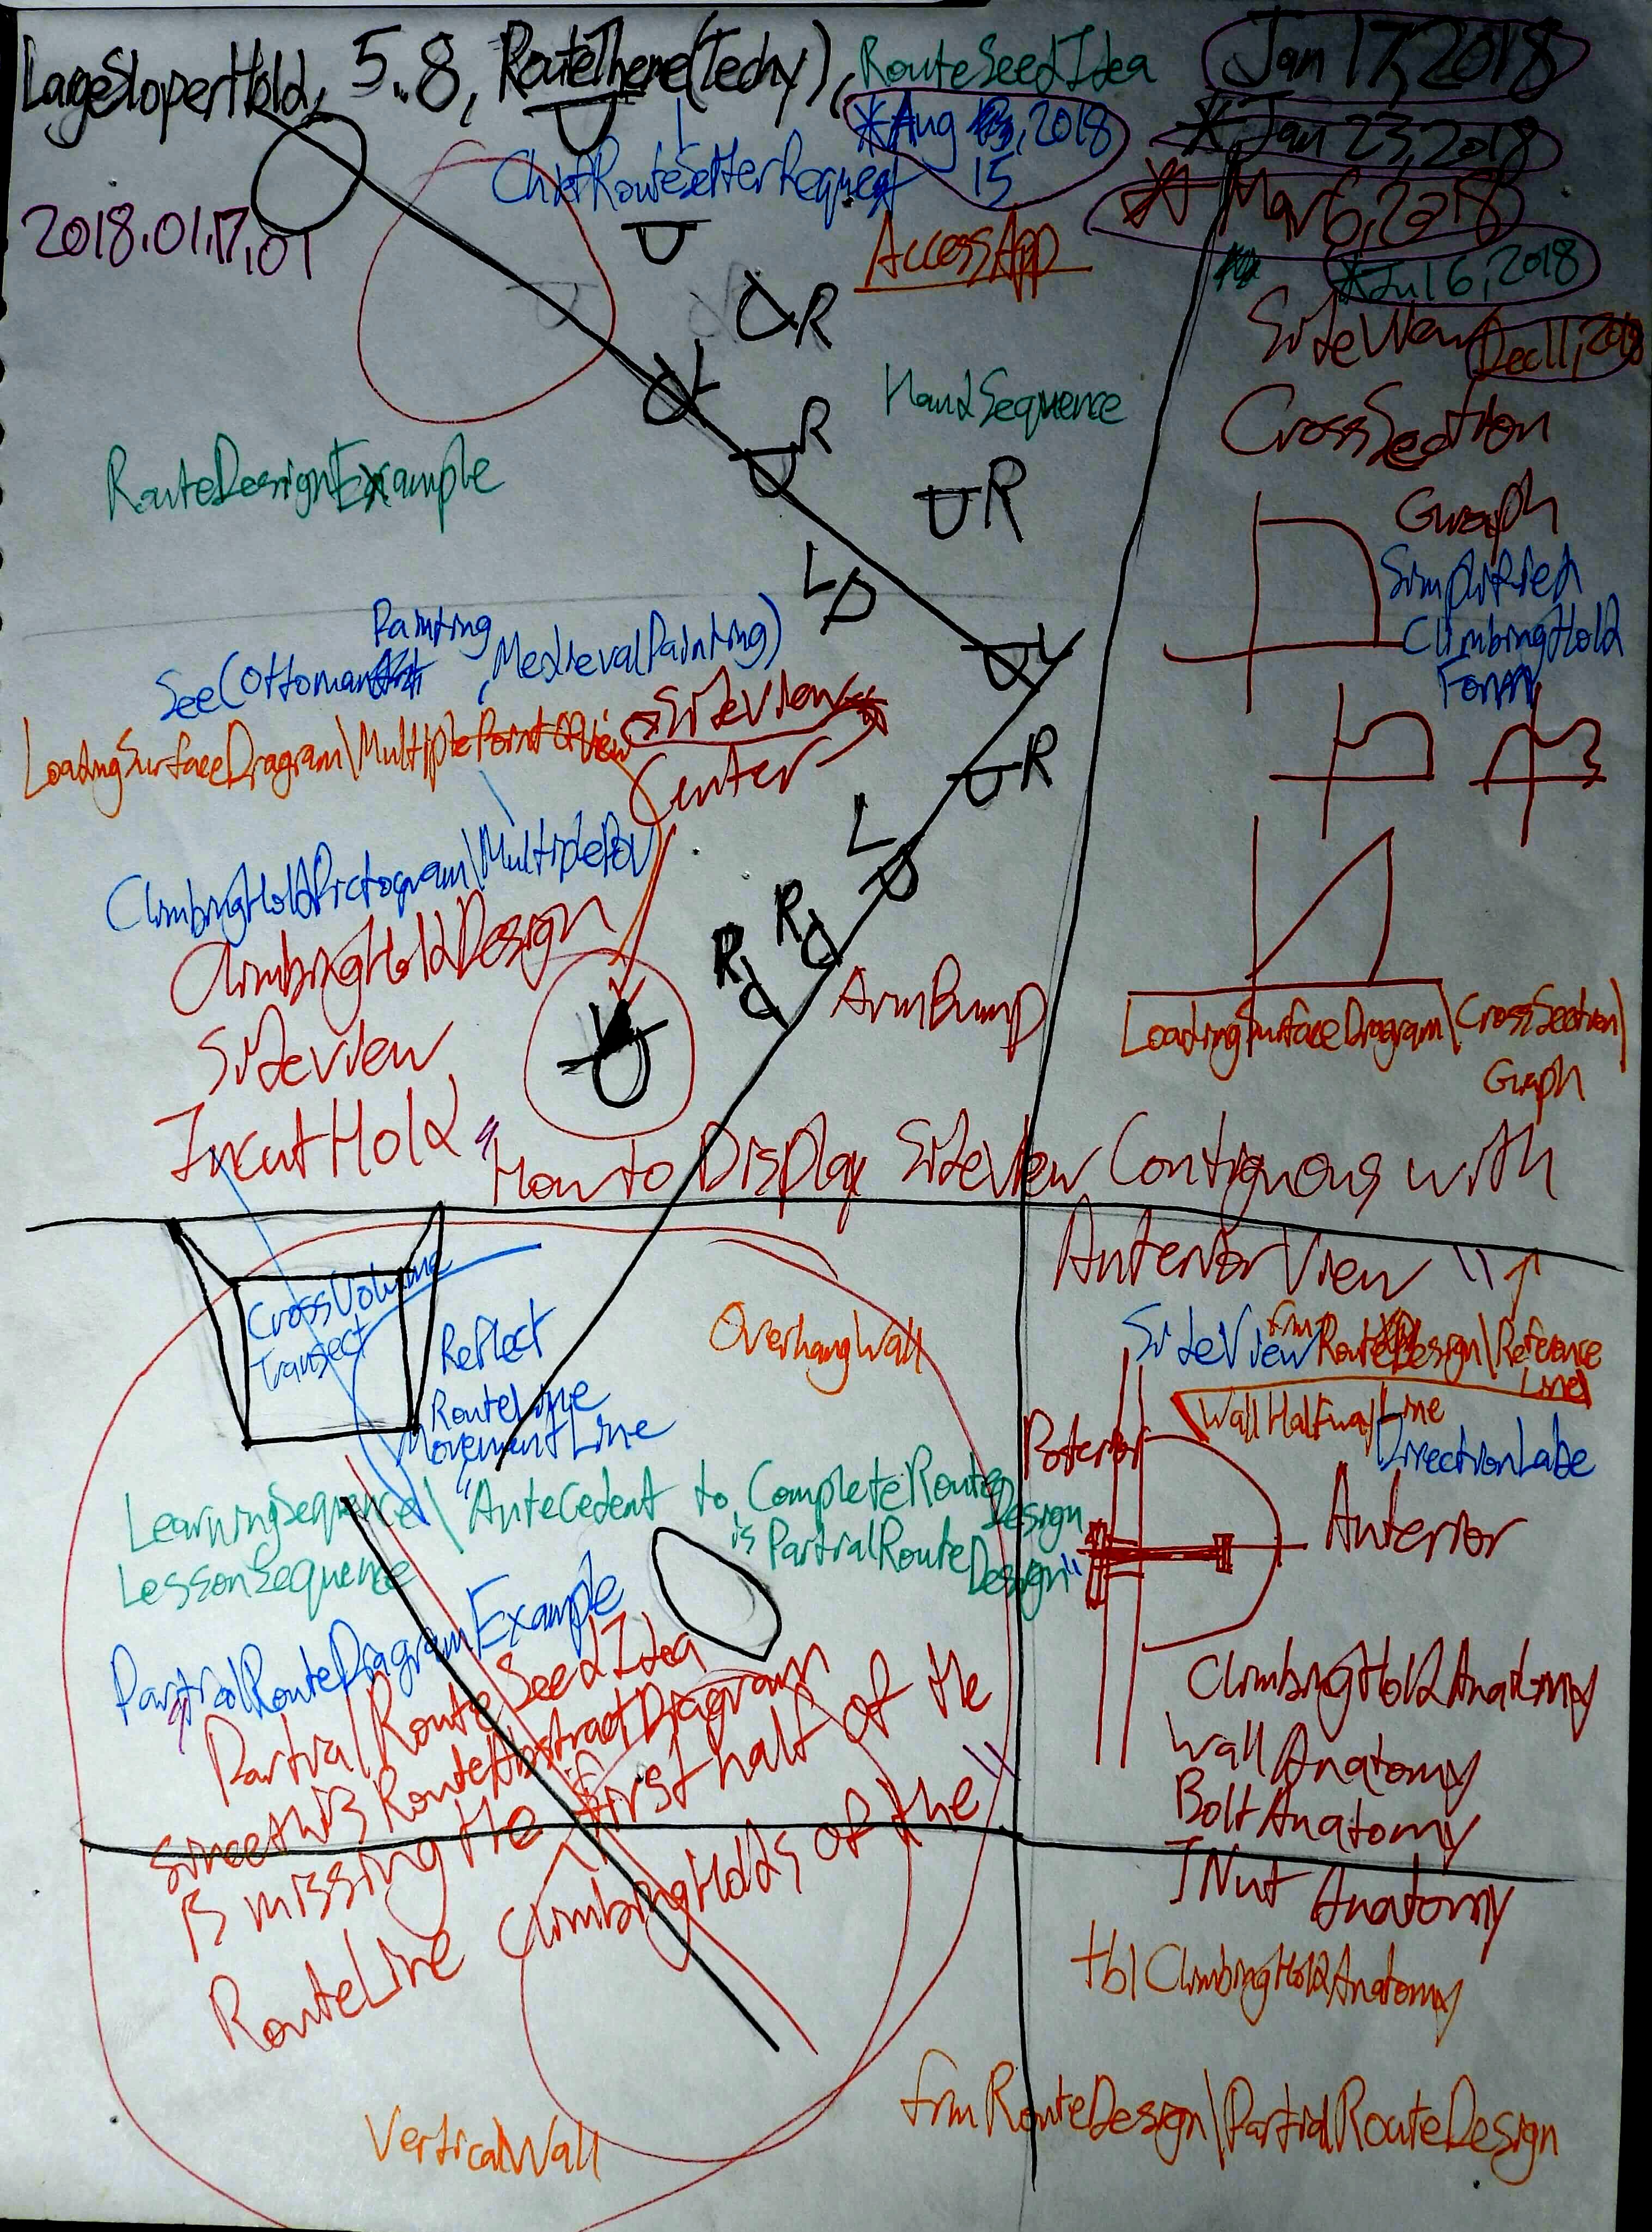 LargeSloperHold, 5.8, RouteTheme(Techy), RouteSeedIdea
Jan 17, 2018
*Aug 15, 2018
*Jan 23, 2018
ChiefRouteSetterRequest
* Mar 6, 2018
2018.01.17.01
AccessApp
*Jul 6, 2018
SideView
Dec 11, 2018
CrossSection
Graph
R
L
R
HandSequence
R
RouteDesignExample
Simplified
ClimbingHold
Form
L
L
Painting
See(Ottoman, MedievalPainting)
LoadingSurfaceDiagram\MultiplePointOfView
SideView
Center
R
L
R
R
ClimbingHoldPictogram\MultiplePov
ClimbingHoldDesign
SideView
IncutHold
ArmBump
LoadingSurfaceDiagram\CrossSection\
Graph
"How to Display SideView Contiguous with
AnteriorView"
CrossVolume
Transect
Reflect
RouteLine
MovementLine
OverhangWall
SideView
frmRouteDesign\Reference
Line
WallHalfwayLine
DirectionLabe
Posterior
Anterior
LearningSequence\"Antecedent to CompleteRoute
Design
is PartialRoute
Design"
LessonSequence
PartialRouteDiagramExample
"Partial RouteSeedIdea
since this RouteAbstractDiagram
is missing the first half of the
RouteLine ClimbingHolds of the"
ClimbingHoldAnatomy
WallAnatomy
BoltAnatomy
TNutAnatomy
tblClimbingHoldAnatomy
frmRouteDesign\PartialRouteDesign
VerticalWall